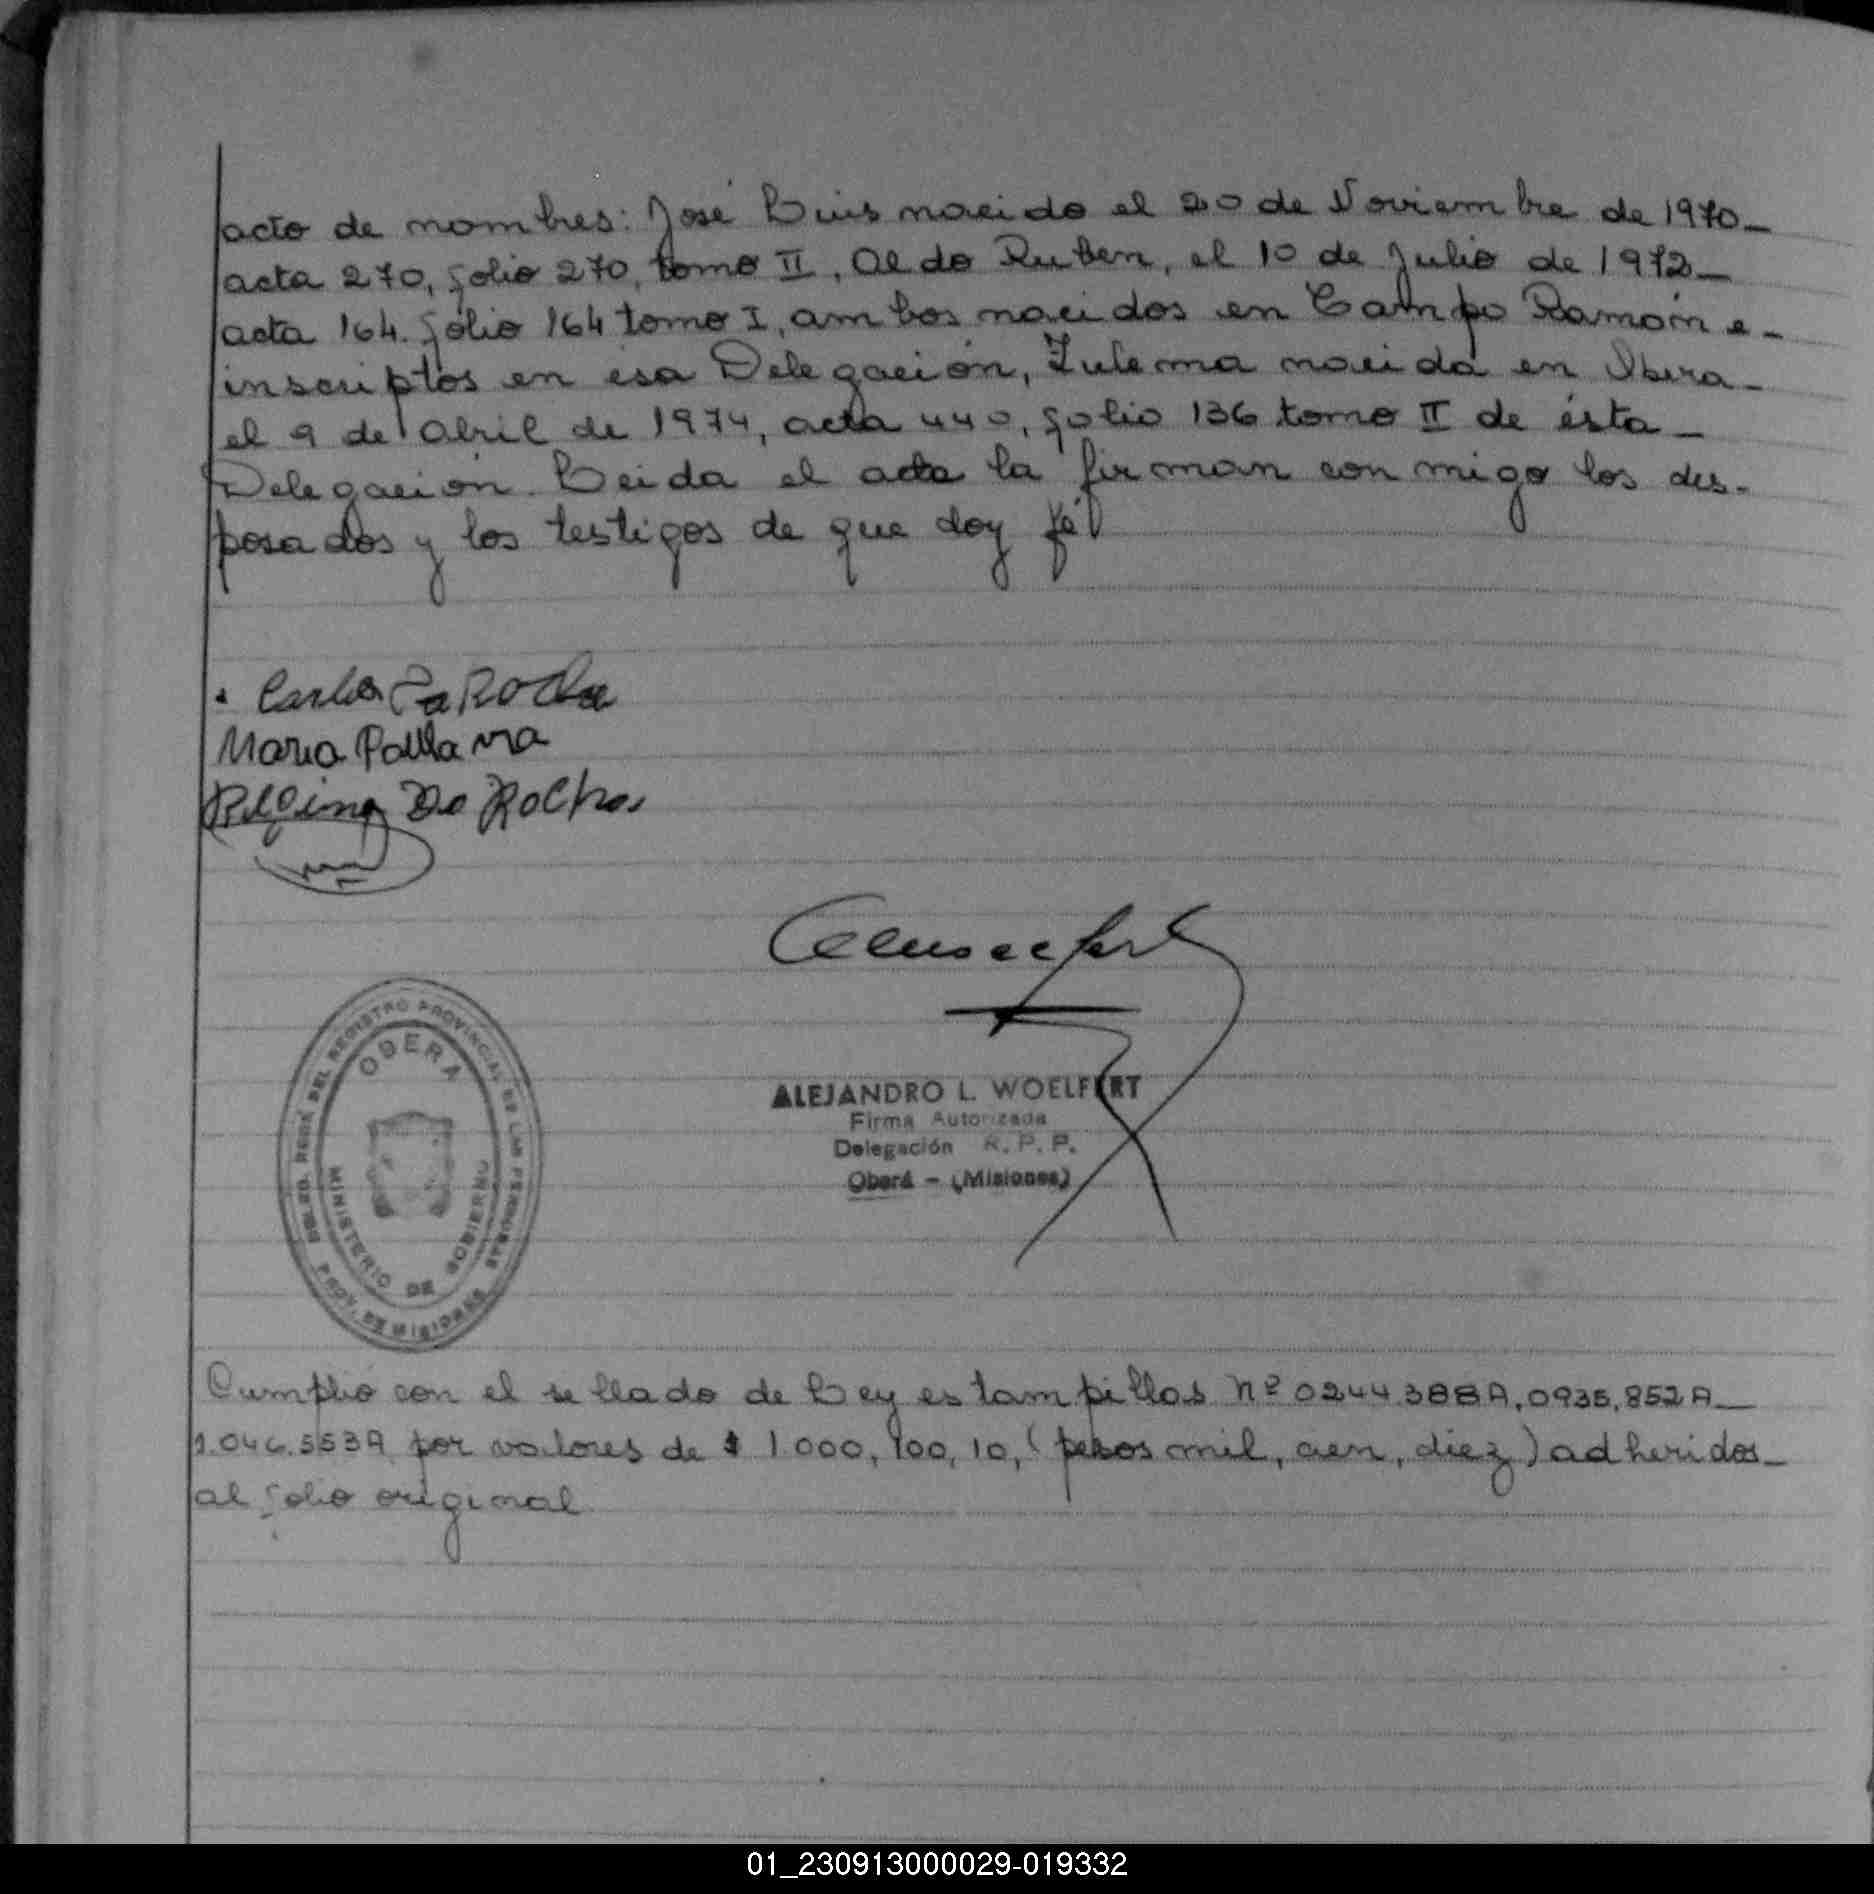 acto de nombres: José Luis nacido el 20 de Noviembre de 1970_
acta 270, folio 270, tomo II, Aldo Ruben, el 10 de Julio de 1972_
acta 164. fólio 164 tomo I, ambos nacidos en Campo Ramón e_
inscriptos en ésa Delegación, Zulema nacida en Obera_
el 9 de Abril de 1974, acta 440, folio 136 tomo II de ésta_
Delegación. Leida el acta la firman conmigo los des-
posados y los testigos de que doy fé
Carlos Da Rocha
Maria
Da Rocha
ALEJANDRO L. WOELFERT
Firma Autorizada
Delegación R. P. P.
Oberá - (Misiones)
DEL REGISTRO PROVINCIAL DE LAS PERSONAS
OBERA
MINISTERIO DE GOBIERNO
PROV. DE MISIONES
Cumplió con el sellado de Ley estampillas nº 0244.388A, 0935.852A_
1.046.553A por valores de $ 1.000, 100, 10, (pesos mil, cien, diez) adheridos_
al folio original
01_230913000029-019332